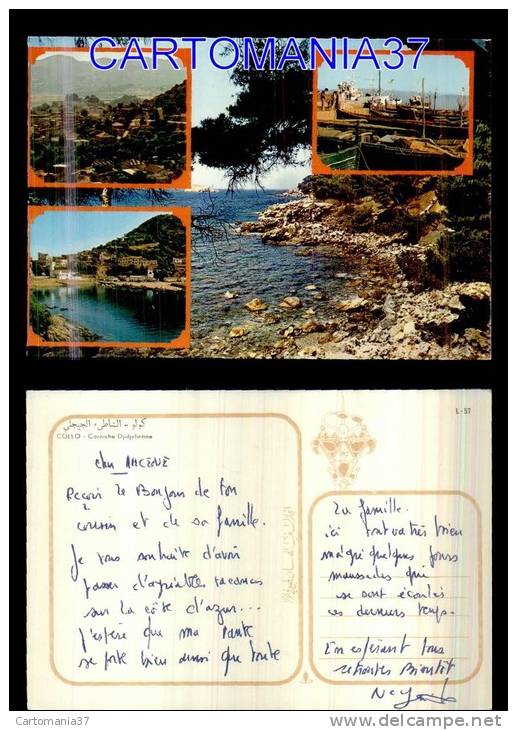 CARTOMANIA37
كولو - الشاطئ الجيجلي
COLLO - Corniche Djidjelienne
L - 57
cher AHCENE
Reçois le Bonjour de ton
cousin et de sa famille.
Je vous souhaite d'avoir
passer d'agréables vacances
sur la côte d'azur...
J'espère que ma tante
se porte bien ainsi que toute
ta famille.
ici tout va très bien
malgré quelques jours
maussades qui
se sont écoulés
ces derniers temps.
En espérant tous
retrouver Bientôt
Cartomania37
www.delcampe.net